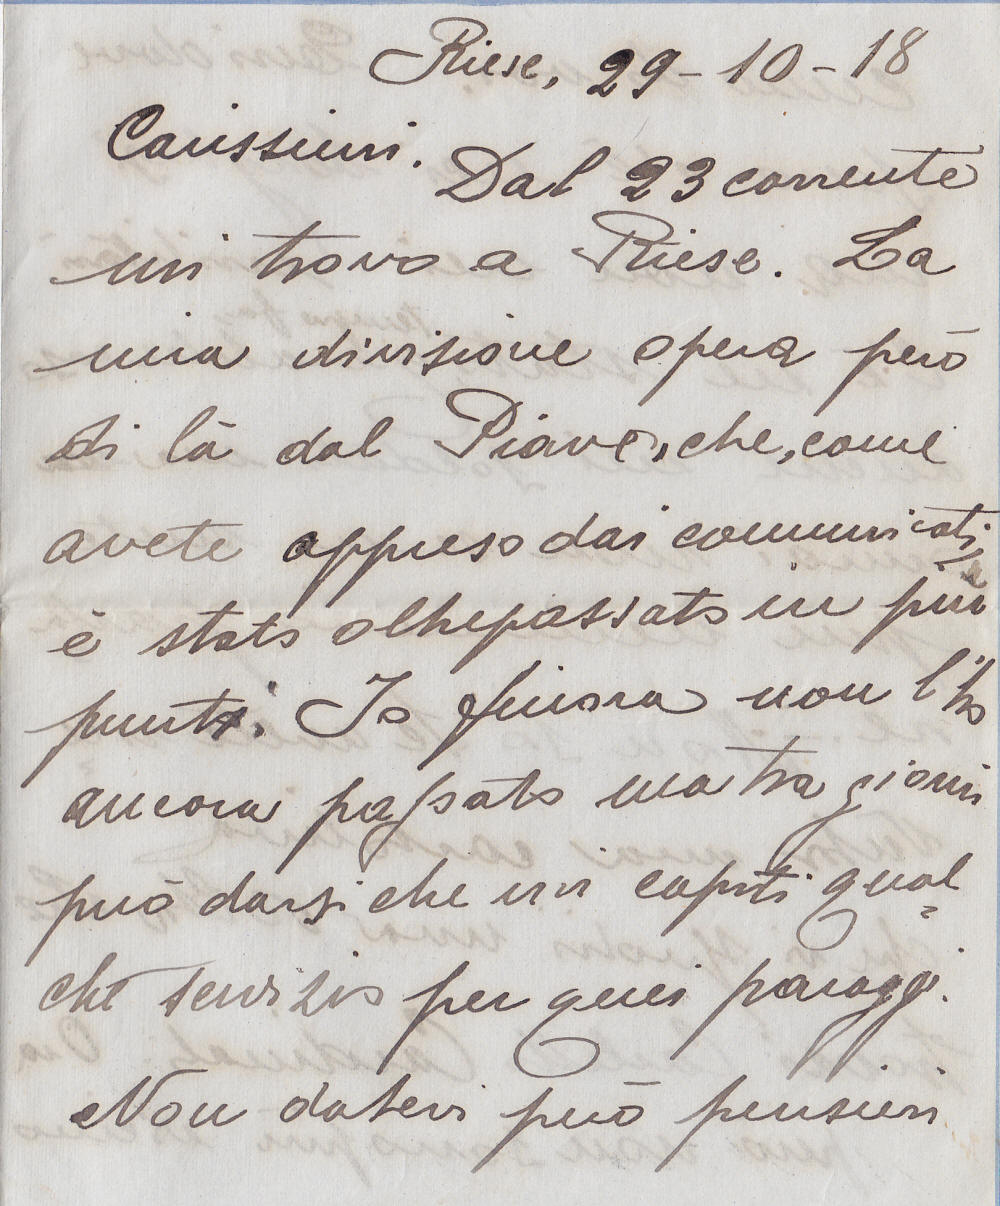 Riese, 29-10-18
Carissimi.
Dal 23 corrente
mi trovo a Riese. La
mia divisione opera però
di là dal Piave, che, come
avete appreso dai comunicati,
è stato oltrepassato in più
punti. Io finora non l'ho
ancora passato ma tra giorni
può darsi che mi capiti qual=
che servizio per quei paraggi.
Non datevi però pensieri